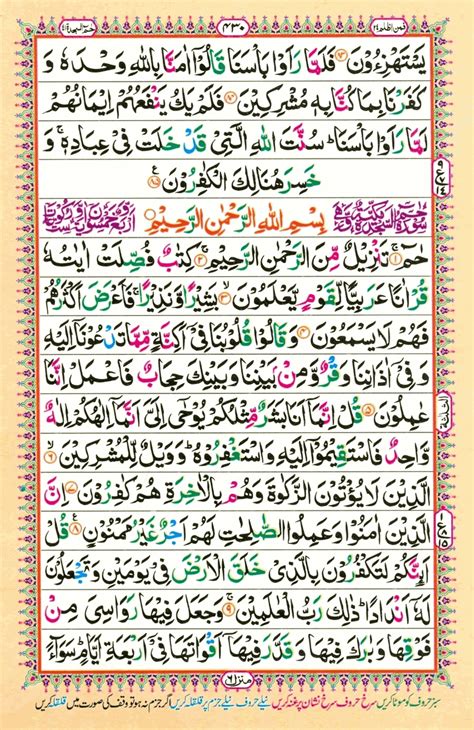 فمن اظلم ٢٤
٤٣٠
حٰمٓ السجدة ٤١
يَسْتَهْزِءُوْنَ ﴿٨٣﴾ فَلَمَّا رَاَوْا بَاْسَنَا قَالُوْٓا اٰمَنَّا بِاللّٰهِ وَحْدَهٗ وَ
كَفَرْنَا بِمَا كُنَّا بِهٖ مُشْرِكِيْنَ ﴿٨٤﴾ فَلَمْ يَكُ يَنْفَعُهُمْ اِيْمَانُهُمْ
لَمَّا رَاَوْا بَاْسَنَا ؕ سُنَّتَ اللّٰهِ الَّتِيْ قَدْ خَلَتْ فِيْ عِبَادِهٖ ۚ وَ
خَسِرَ هُنَالِكَ الْكٰفِرُوْنَ ﴿٨٥﴾
سُوْرَةُ حٰمٓ السَّجْدَةِ مَكِّيَّةٌ وَّهِيَ
بِسْمِ اللّٰهِ الرَّحْمٰنِ الرَّحِيْمِ
اَرْبَعٌ وَّخَمْسُوْنَ اٰيَةً وَّسِتُّ رُكُوْعَاتٍ
حٰمٓ ﴿١﴾ تَنْزِيْلٌ مِّنَ الرَّحْمٰنِ الرَّحِيْمِ ﴿٢﴾ كِتٰبٌ فُصِّلَتْ اٰيٰتُهٗ
قُرْاٰنًا عَرَبِيًّا لِّقَوْمٍ يَّعْلَمُوْنَ ﴿٣﴾ بَشِيْرًا وَّنَذِيْرًا ۚ فَاَعْرَضَ اَكْثَرُهُمْ
فَهُمْ لَا يَسْمَعُوْنَ ﴿٤﴾ وَقَالُوْا قُلُوْبُنَا فِيْٓ اَكِنَّةٍ مِّمَّا تَدْعُوْنَآ اِلَيْهِ
وَفِيْٓ اٰذَانِنَا وَقْرٌ وَّمِنْۢ بَيْنِنَا وَبَيْنِكَ حِجَابٌ فَاعْمَلْ اِنَّنَا
عٰمِلُوْنَ ﴿٥﴾ قُلْ اِنَّمَآ اَنَا بَشَرٌ مِّثْلُكُمْ يُوْحٰٓى اِلَيَّ اَنَّمَآ اِلٰهُكُمْ اِلٰهٌ
وَّاحِدٌ فَاسْتَقِيْمُوْٓا اِلَيْهِ وَاسْتَغْفِرُوْهُ ؕ وَوَيْلٌ لِّلْمُشْرِكِيْنَ ﴿٦﴾
الَّذِيْنَ لَا يُؤْتُوْنَ الزَّكٰوةَ وَهُمْ بِالْاٰخِرَةِ هُمْ كٰفِرُوْنَ ﴿٧﴾ اِنَّ
الَّذِيْنَ اٰمَنُوْا وَعَمِلُوا الصّٰلِحٰتِ لَهُمْ اَجْرٌ غَيْرُ مَمْنُوْنٍ ﴿٨﴾ قُلْ
اَئِنَّكُمْ لَتَكْفُرُوْنَ بِالَّذِيْ خَلَقَ الْاَرْضَ فِيْ يَوْمَيْنِ وَتَجْعَلُوْنَ
لَهٗٓ اَنْدَادًا ؕ ذٰلِكَ رَبُّ الْعٰلَمِيْنَ ﴿٩﴾ وَجَعَلَ فِيْهَا رَوَاسِيَ مِنْ
فَوْقِهَا وَبٰرَكَ فِيْهَا وَقَدَّرَ فِيْهَآ اَقْوَاتَهَا فِيْٓ اَرْبَعَةِ اَيَّامٍ ؕ سَوَآءً
منزل ٦
سبز حروف کو موٹا کریں سرخ حروف سرخ نشان پر غنہ کریں نیلے حروف نیلے جزم پر قلقلہ کریں اگر جزم نہ ہو تو وقف کی صورت میں قلقلہ کریں